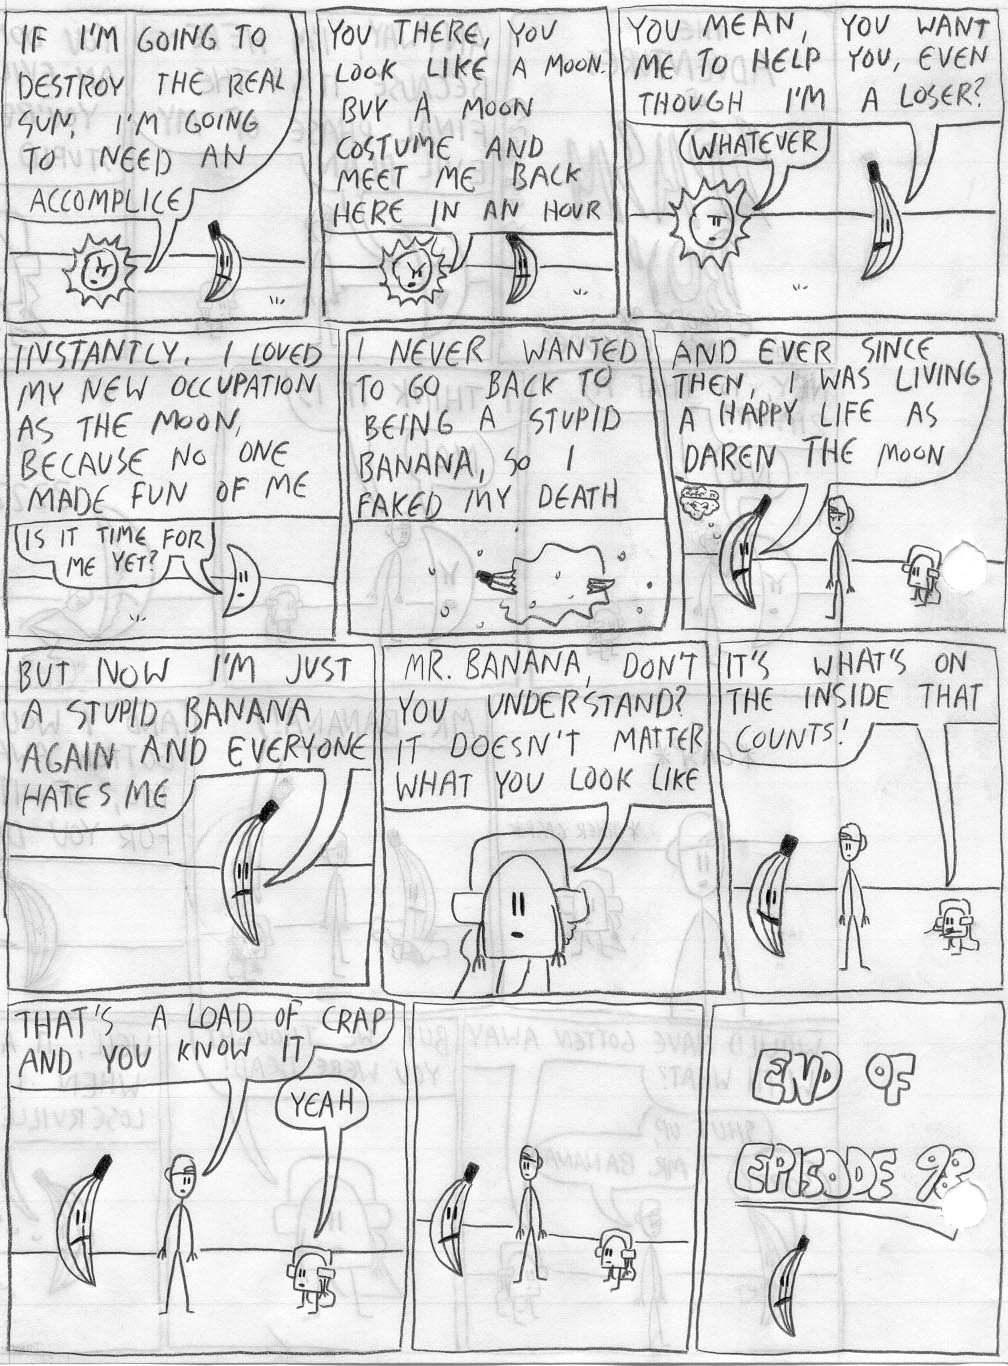 IF I'M GOING TO
DESTROY THE REAL
SUN, I'M GOING
TO NEED AN
ACCOMPLICE
YOU THERE, YOU
LOOK LIKE A MOON.
BUY A MOON
COSTUME AND
MEET ME BACK
HERE IN AN HOUR
YOU MEAN, YOU WANT
ME TO HELP YOU, EVEN
THOUGH I'M A LOSER?
WHATEVER
INSTANTLY, I LOVED
MY NEW OCCUPATION
AS THE MOON,
BECAUSE NO ONE
MADE FUN OF ME
IS IT TIME FOR
ME YET?
I NEVER WANTED
TO GO BACK TO
BEING A STUPID
BANANA, SO I
FAKED MY DEATH
AND EVER SINCE
THEN, I WAS LIVING
A HAPPY LIFE AS
DAREN THE MOON
BUT NOW I'M JUST
A STUPID BANANA
AGAIN AND EVERYONE
HATES ME
MR. BANANA, DON'T
YOU UNDERSTAND?
IT DOESN'T MATTER
WHAT YOU LOOK LIKE
IT'S WHAT'S ON
THE INSIDE THAT
COUNTS!
THAT'S A LOAD OF CRAP
AND YOU KNOW IT
YEAH
END OF
EPISODE 98